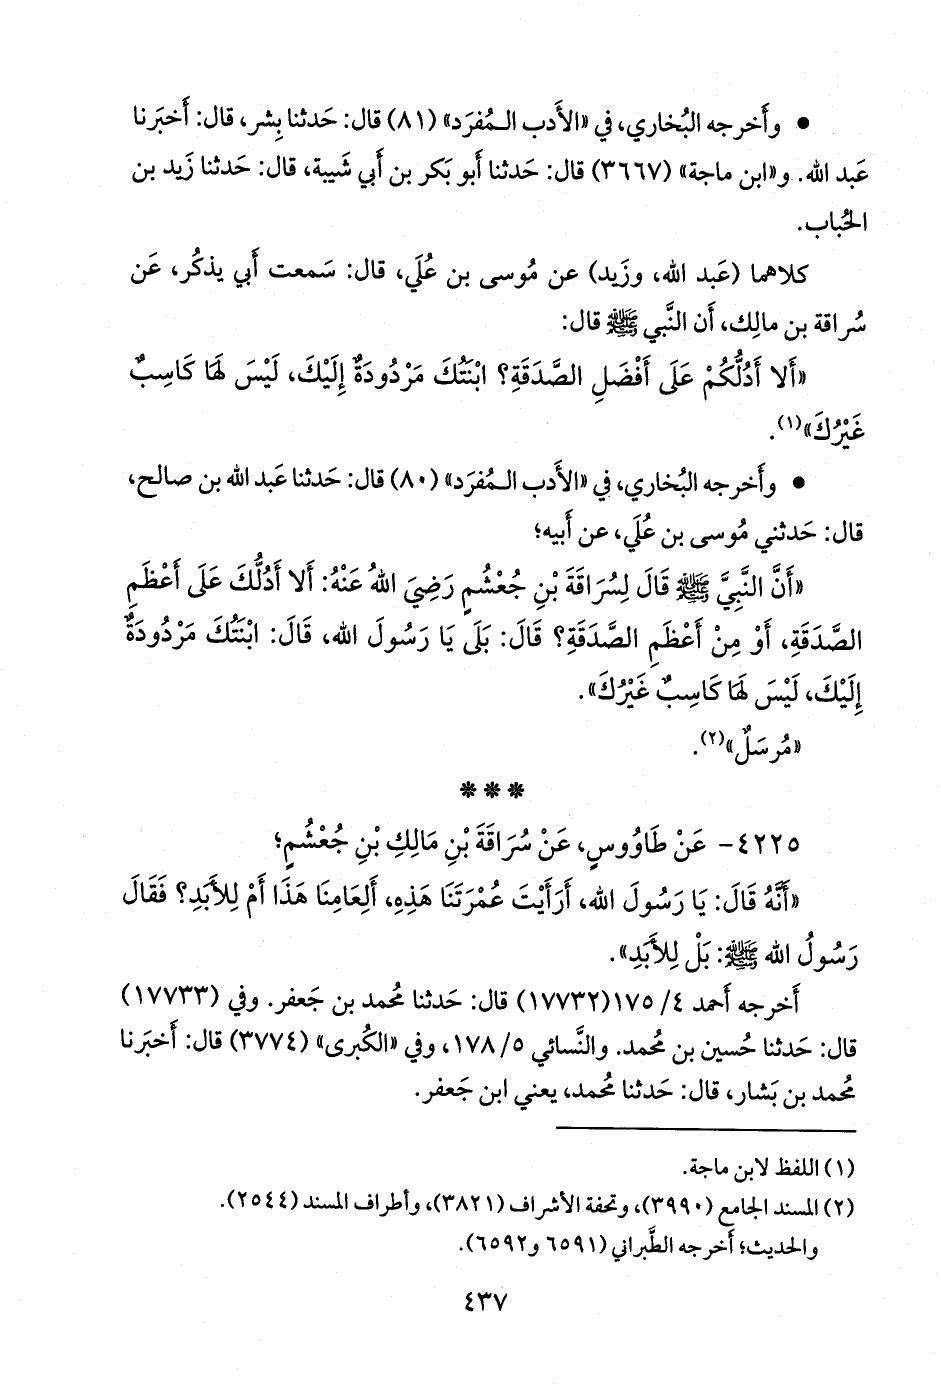 • وأَخرجه البُخاري، في «الأَدب الـمُفرَد» (٨١) قال: حَدثنا بِشر، قال: أَخبَرنا
عَبد الله. و«ابن ماجة» (٣٦٦٧) قال: حَدثنا أَبو بَكر بن أَبي شَيبة، قال: حَدثنا زَيد بن
الحُباب.
كلاهما (عَبد الله، وزَيد) عن مُوسى بن عُلَي، قال: سَمعت أَبي يذكُر، عَن
سُراقة بن مالِك، أَن النَّبي ﷺ قال:
«أَلا أَدُلُّكُمْ عَلَى أَفْضَلِ الصَّدَقَةِ؟ ابْنَتُكَ مَرْدُودَةٌ إِلَيْكَ، لَيْسَ لَهَا كَاسِبٌ
غَيْرُكَ»(١).
• وأَخرجه البُخاري، في «الأَدب الـمُفرَد» (٨٠) قال: حَدثنا عَبد الله بن صالح،
قال: حَدثني مُوسى بن عُلَي، عن أَبيه؛
«أَنَّ النَّبِيَّ ﷺ قَالَ لِسُرَاقَةَ بْنِ جُعْشُمٍ رَضِيَ اللهُ عَنْهُ: أَلا أَدُلُّكَ عَلَى أَعْظَمِ
الصَّدَقَةِ، أَوْ مِنْ أَعْظَمِ الصَّدَقَةِ؟ قَالَ: بَلَى يَا رَسُولَ الله، قَالَ: ابْنَتُكَ مَرْدُودَةٌ
إِلَيْكَ، لَيْسَ لَهَا كَاسِبٌ غَيْرُكَ».
«مُرسَلٌ»(٢).
* * *
٤٢٢٥- عَنْ طَاوُوسٍ، عَنْ سُرَاقَةَ بْنِ مَالِكِ بْنِ جُعْشُمٍ؛
«أَنَّهُ قَالَ: يَا رَسُولَ الله، أَرَأَيْتَ عُمْرَتَنَا هَذِهِ، أَلِعَامِنَا هَذَا أَمْ لِلأَبَدِ؟ فَقَالَ
رَسُولُ الله ﷺ: بَلْ لِلأَبَدِ».
أَخرجه أَحمد ٤/ ١٧٥(١٧٧٣٢) قال: حَدثنا مُحمد بن جَعفر. وفي (١٧٧٣٣)
قال: حَدثنا حُسين بن مُحمد. والنَّسائي ٥/ ١٧٨، وفي «الكُبرى» (٣٧٧٤) قال: أَخبَرنا
مُحمد بن بَشار، قال: حَدثنا مُحمد، يعني ابن جَعفر.
(١) اللفظ لابن ماجة.
(٢) المسند الجامع (٣٩٩٠)، وتحفة الأشراف (٣٨٢١)، وأطراف المسند (٢٥٤٤).
والحديث؛ أَخرجه الطَّبراني (٦٥٩١ و٦٥٩٢).
٤٣٧